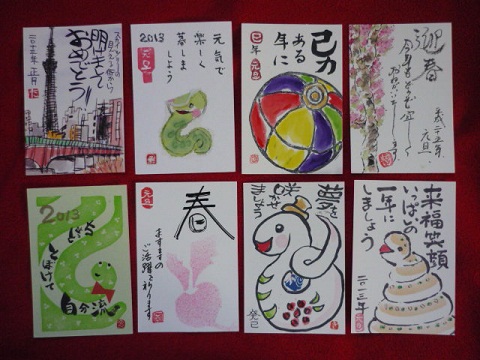 スカイツリーの
見える街から
明けまして
おめでとう!
二〇一三年 正月
2013
元旦
元気で
楽しく
暮しま
しょう
巳力
ある
年に
巳年 元旦
迎春
今年もどうぞ宜しく
おねがいいたします
平成二十五年
元旦
2013
とぼけて
自分流
元旦
春
ますますの
ご活躍を祈ります
夢を
咲かせ
ましょう
癸巳
来福笑顔
いっぱいの
一年に
しましょう
二〇一三年